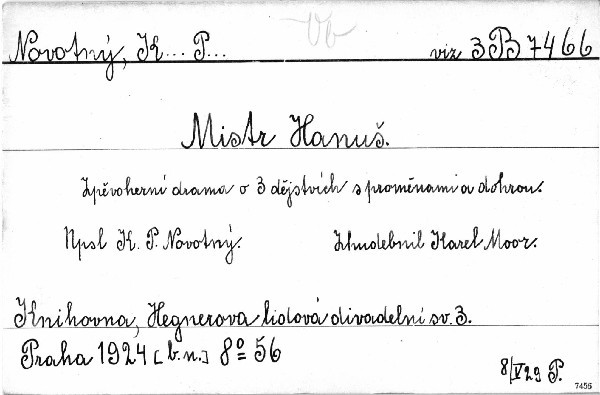 Novotný, K... P... viz 3 B 7466
Mistr Hanuš.
Zpěvoherní drama o 3 dějstvích s proměnami a dohrou.
Npsl K. P. Novotný. Zhudebnil Karel Moor.
Knihovna, Hegnerova lidová divadelní sv. 3.
Praha 1924 [b.n.] 8° 56
8/V 29 P.
7456